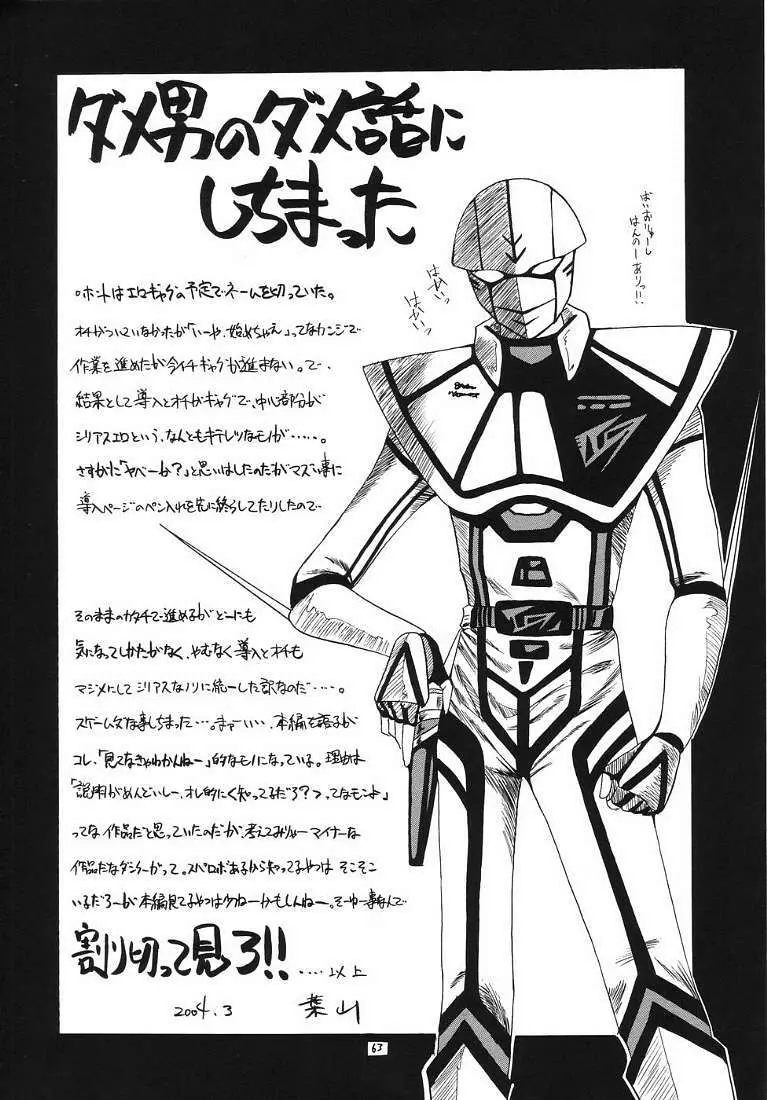 ダメ男のダメ話に
しちまった
ホントはエロギャグの予定でネームを切っていた。
オチがついていなかったが「いーや、始めちゃえ」ってなカンジで
作業を進めたが今イチギャグが進まない。で、
結果として導入とオチがギャグで、中心部分が
シリアスエロという、なんともキテレツなモノが・・・・・。
さすがに「ヤベーか?」と思いはしたのだがマズい事に
導入ページのペン入れを先に終らしてたりしたので
そのままのカタチで進めるがどーにも
気になってしかたがなく、やむなく導入とオチも
マジメにしてシリアスなノリに統一した訳なのだ・・・・。
スゲームダな事しちまった・・・。まぁーいい、本編を語るが
コレ、「見てなきゃわかんねー」的なモノになっている。理由は
「説明がめんどいしー、オレ的にく知ってるだろ?>てなモンよ」
ってな作品だと思っていたのだが、考えてみりゃーマイナーな
作品だなダンクーガって。スパロボあるから知ってるやつは そこそこ
いるだろーが本編見てるやつは少ねーかもしんねー。そーゆー事なんで
割り切って見ろ!!
・・・・以上
2004.3 葉山
ばいおりゅーし
はんのーありっ!!
はぁいっ
はぁいっ
63